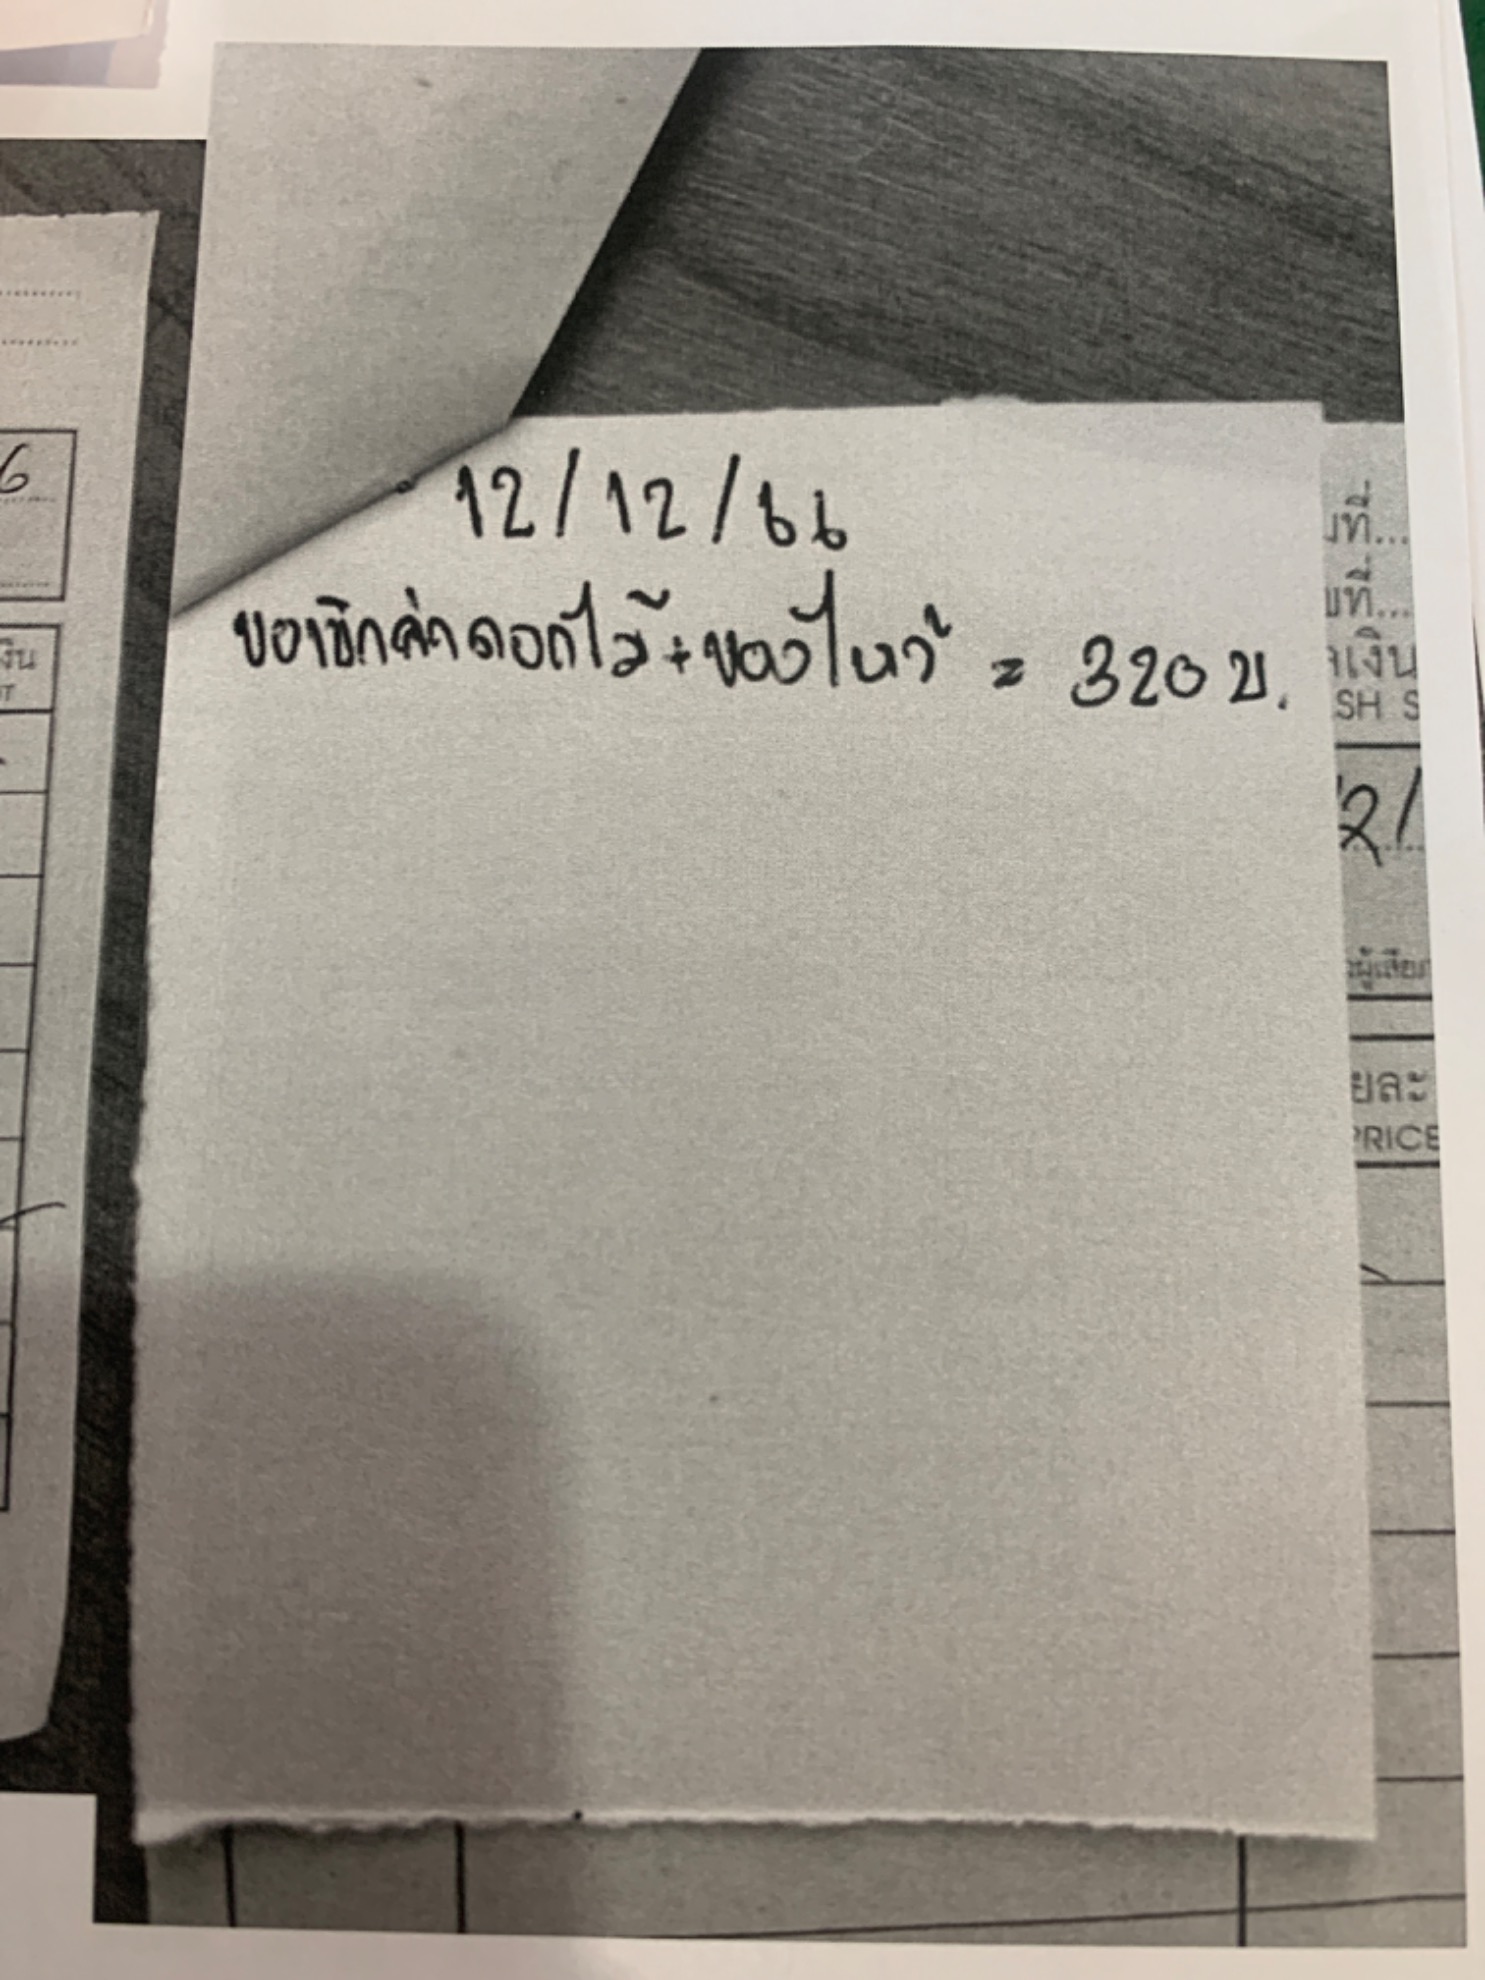 12/12/66
ขอเบิกค่าดอกไม้+ของไหว้ = 320 บ.
6
งิน
ที่...
ที่...
เงิน
SH S
2/
ผู้เสีย
ยละ
PRICE